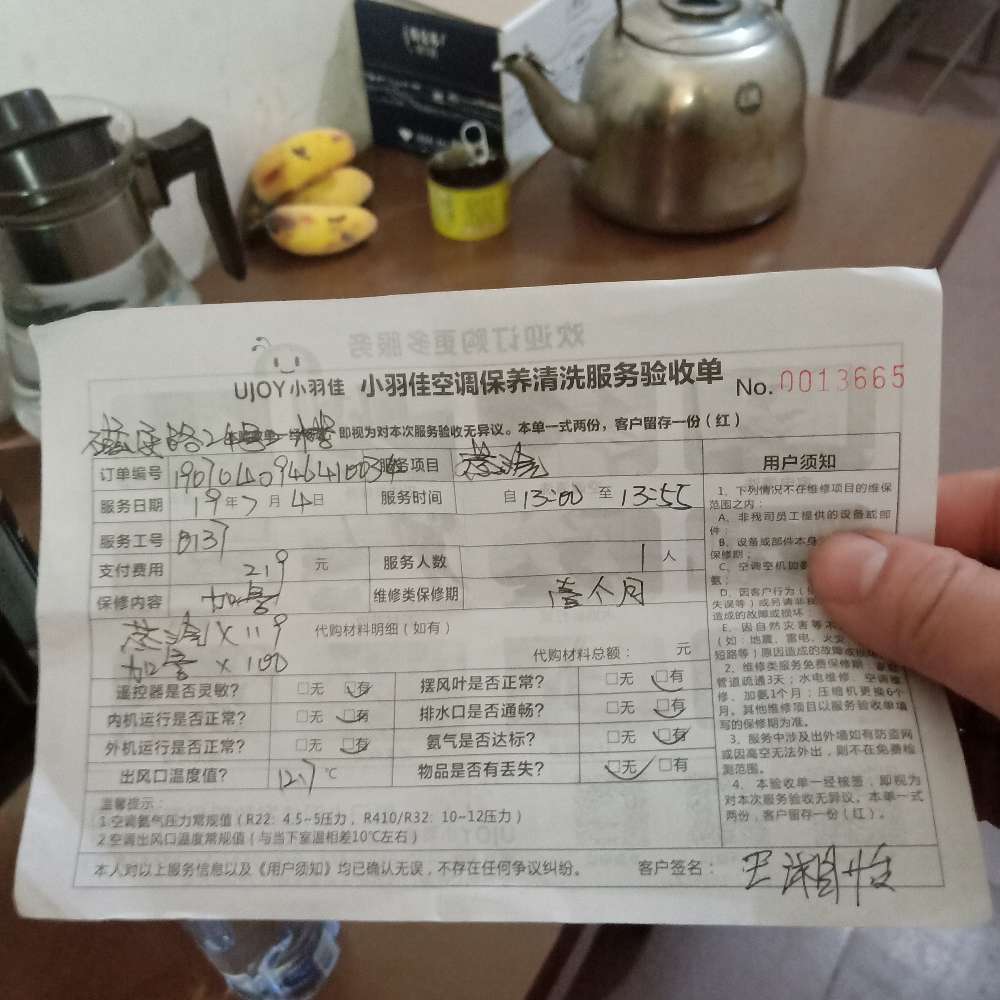 UJOY小羽佳 小羽佳空调保养清洗服务验收单 No. 0013665
即视为对本次服务验收无异议。本单一式两份，客户留存一份（红）
订单编号 服务项目 蒸洗
服务日期 19年7月4日 服务时间 自13:00 至 13:55
服务工号 B137
支付费用 219 元 服务人数 1 人
保修内容 加氨 维修类保修期 壹个月
蒸洗 X 119 代购材料明细（如有）
加氨 X 100 代购材料总额： 元
遥控器是否灵敏? □无 □有 摆风叶是否正常? □无 □有
内机运行是否正常? □无 □有 排水口是否通畅? □无 □有
外机运行是否正常? □无 □有 氨气是否达标? □无 □有
出风口温度值? 12.7 ℃ 物品是否有丢失? □无 □有
温馨提示：
1.空调氨气压力常规值（R22: 4.5~5压力，R410/R32: 10~12压力）
2.空调出风口温度常规值（与当下室温相差10℃左右）
本人对以上服务信息以及《用户须知》均已确认无误，不存在任何争议纠纷。 客户签名：
用户须知
1、下列情况不在维修项目的维保
范围之内：
A、非我司员工提供的设备或部
件；
B、设备或部件本身
保修期；
C、空调空机
氨；
D、因客户行为
失误等）或另请非我
造成的故障或损坏；
E、因自然灾害等不
（如：地震、雷电、火灾
短路等）原因造成的故障
2、维修类服务免费保修期：
管道疏通3天；水电维修、空调维
修、加氨1个月；压缩机更换6个
月。其他维修项目以服务验收单填
写的保修期为准。
3、服务中涉及出外墙如有防盗网
或因高空无法外出，则不在免费检
测范围。
4、本验收单一经核签，即视为
对本次服务验收无异议。本单一式
两份，客户留存一份（红）。
欢迎订购更多服务